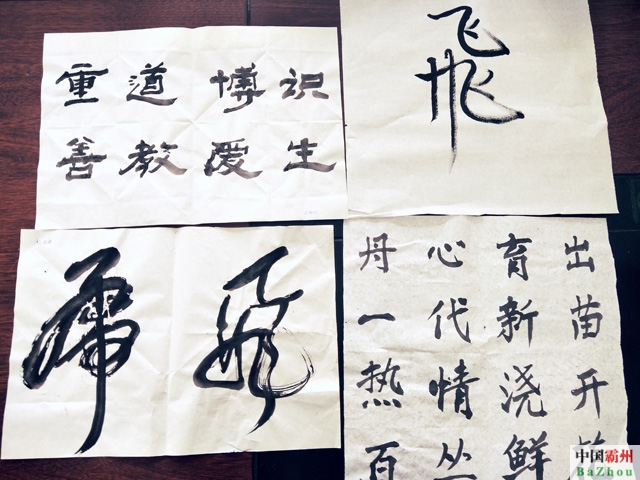 重道博识
善教爱生
飛
飛
丹心育出
一代新苗
热情浇开
百丛鲜
中国霸州
BaZhou